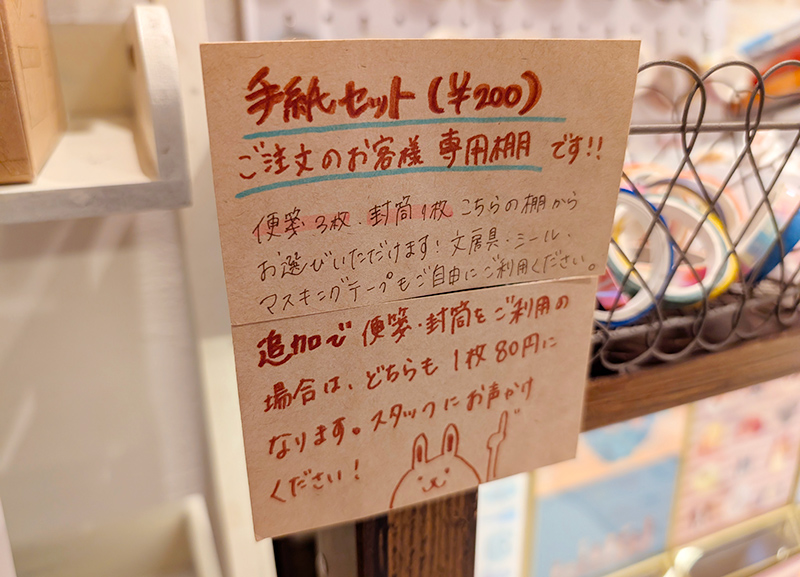 手紙セット(¥200)
ご注文のお客様 専用棚 です!!
便箋3枚・封筒1枚 こちらの棚から
お選びいただけます! 文房具・シール・
マスキングテープもご自由にご利用ください。
追加で 便箋・封筒をご利用の
場合は、どちらも 1枚80円に
なります。スタッフにお声かけ
ください!